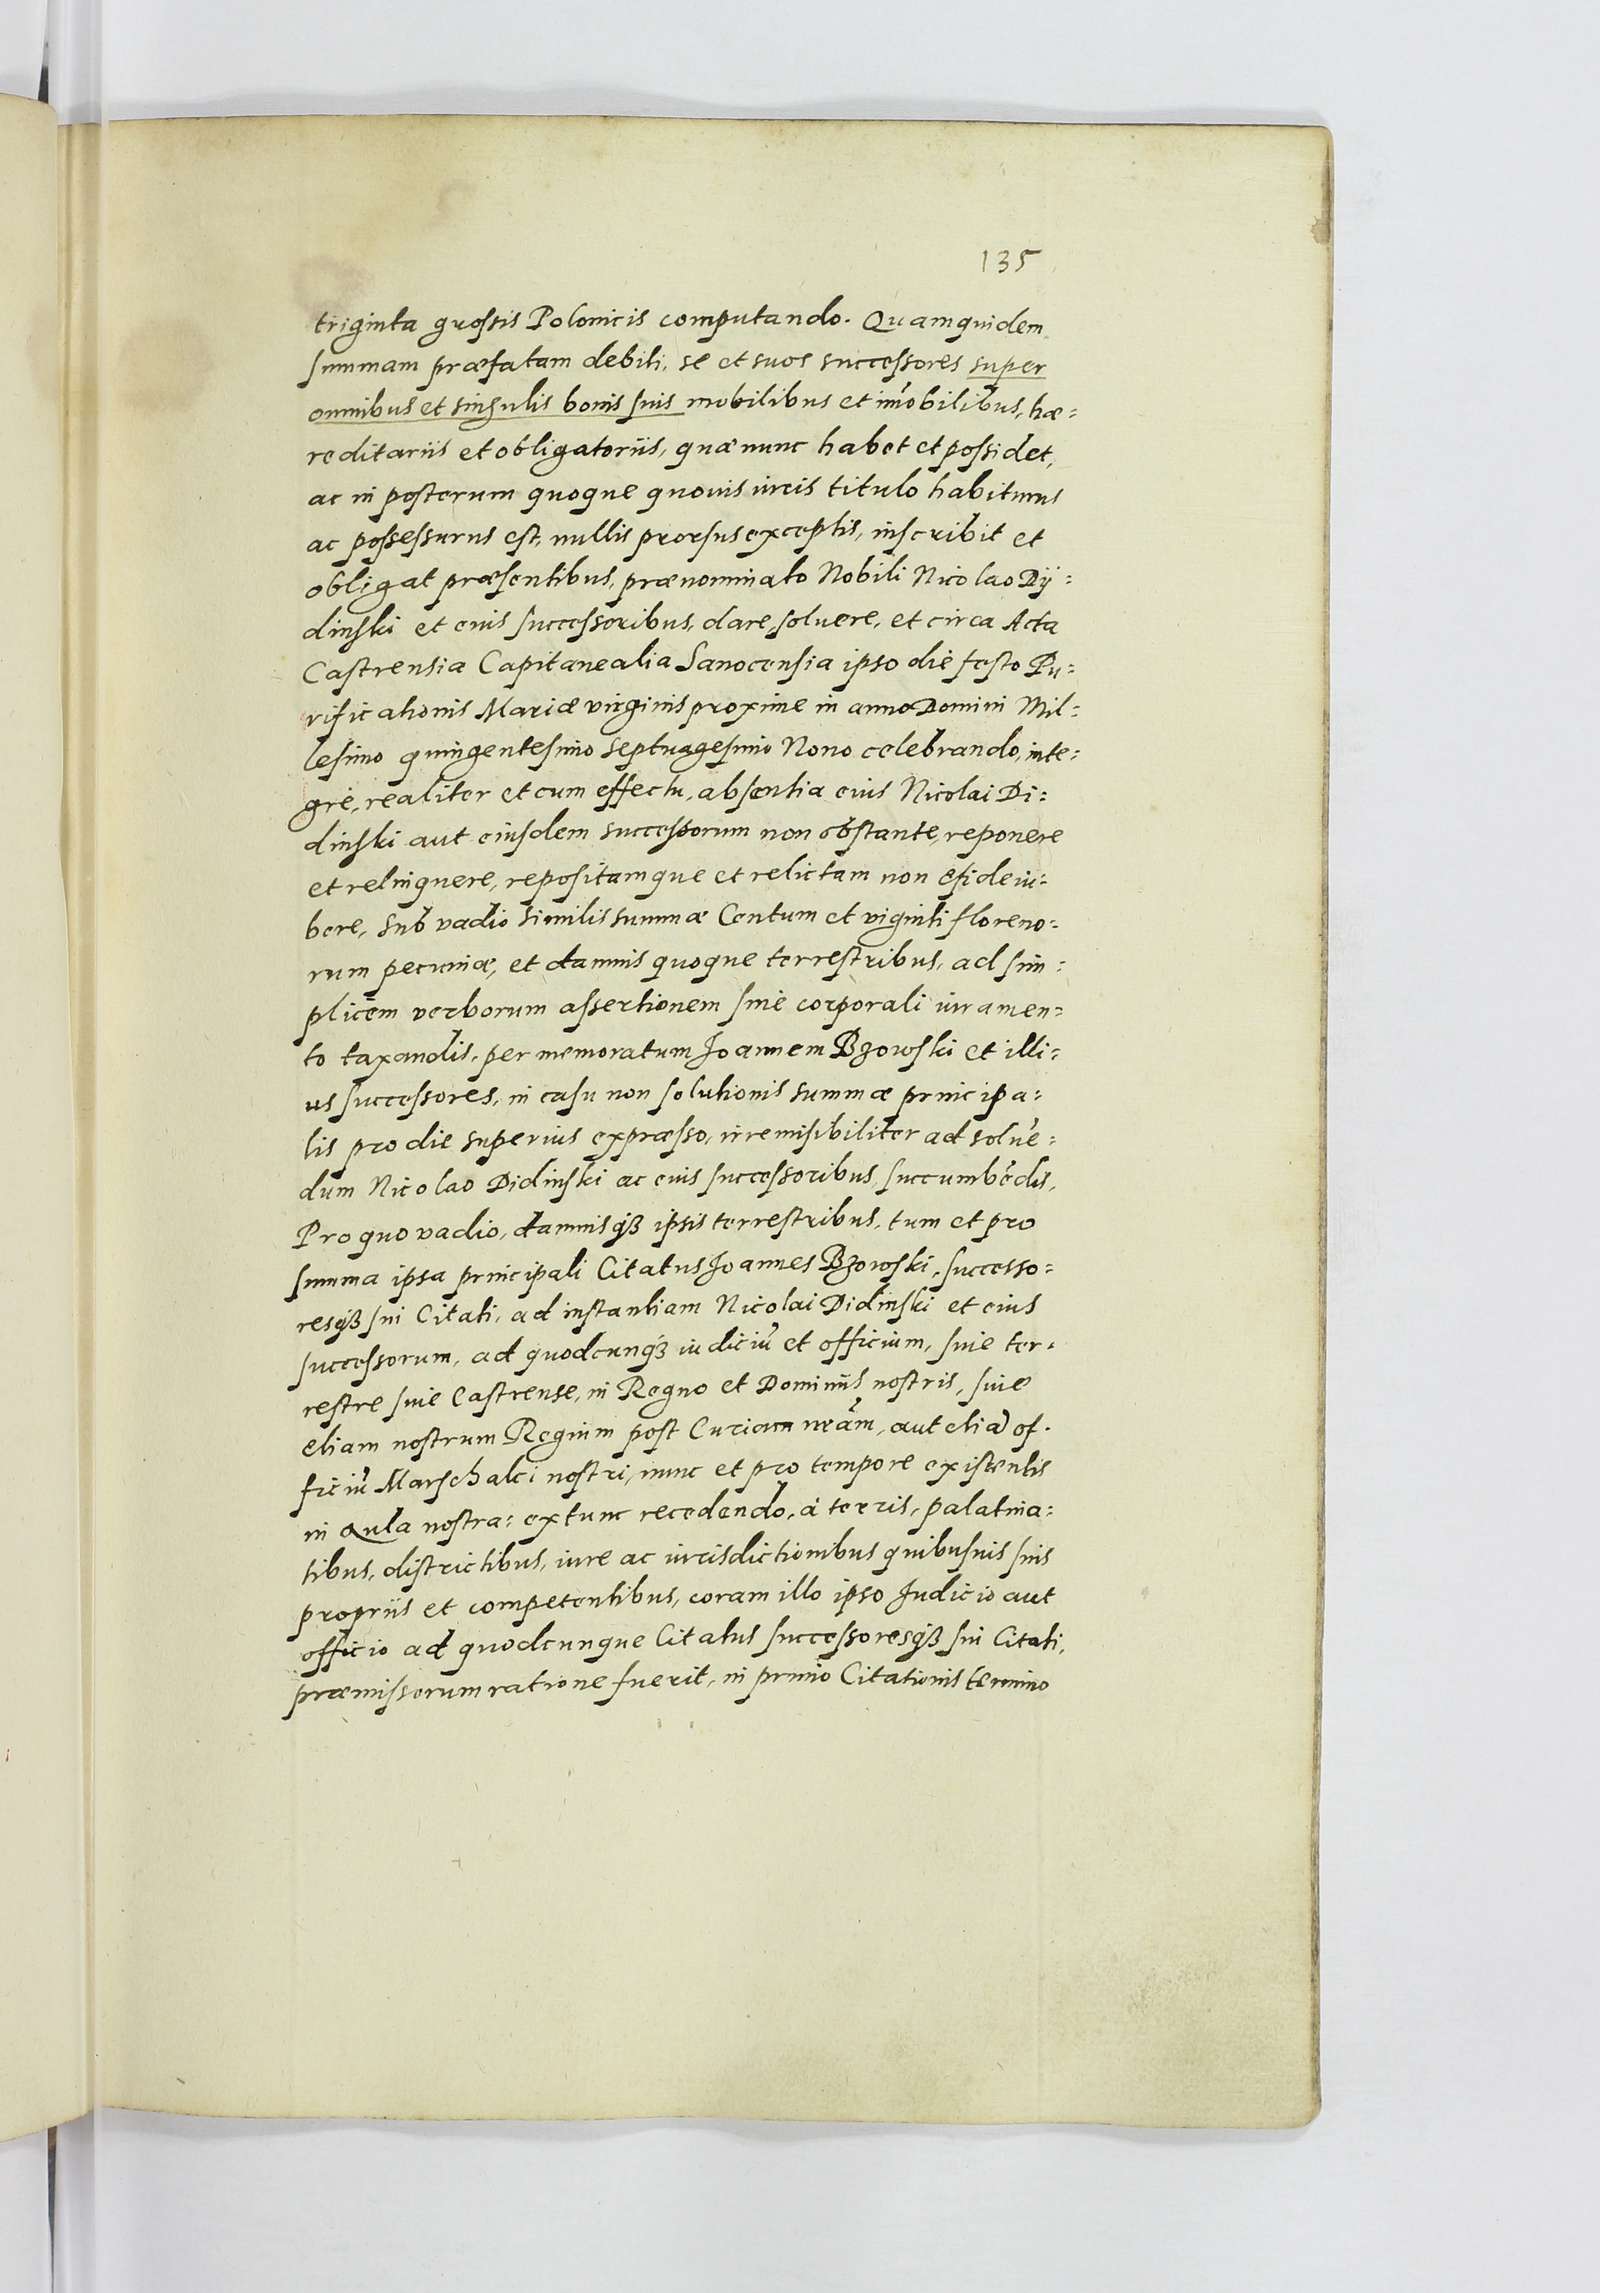 135
triginta grossis Polonicis computando. Quamquidem
summam præfatam debiti, se et suos successores super
omnibus et singulis bonis suis mobilibus et im̃obilibus, hæ=
reditariis et obligatoriis, quæ nunc habet et possidet,
ac in posterum quoque quouis iuris titulo habiturus
ac possessurus est, nullis prorsus exceptis, inscribit et
obligat præsentibus, prænominato Nobili Nicolao Dÿ=
dinski et eius successoribus, dare, soluere, et circa Acta
Castrensia Capitanealia Sanocensia ipso die festo Pu=
rificationis Mariæ virginis proxime in anno Domini Mil=
lesimo quingentesimo septuagesimo Nono celebrando, inte=
grè, realiter et cum effectu, absentia eius Nicolai Di=
dinski aut eiusdem successorum non obstante, reponere
et relinquere, repositamque et relictam non
bere, sub vadio similis summæ Centum et viginti floreno=
rum pecuniæ, et damnis quoque terrestribus, ad sim=
plicem verborum assertionem sine corporali iuramen=
to taxandis, per memoratum Joannem Bzowski et illi=
us successores, in casu non solutionis summæ principa=
lis pro die superius expresso, irremisibiliter ad soluẽ=
dum Nicolao Didinski ac eius successoribus, succumbẽdis,
Pro quo vadio, damnisqȝ ipsis terrestribus, tum et pro
summa ipsa principali Citatus Joannes Bzowski, successo=
resqȝ sui Citati, ad instantiam Nicolai Didinski et eius
successorum, ad quodcunqȝ iudiciũ et officium, siue ter=
restre siue Castrense, in Regno et Dominiis nostris, siue
etiam nostrum Regium post Curiam nr̃am, aut etiã of=
ficiũ Marschalci nostri, nunc et pro tempore existentis
in Aula nostra: extunc recedendo, à terris, palatina=
tibus, districtibus, iure ac iurisdictionibus quibusuis suis
propriis et competentibus, coram illo ipso Judicio aut
officio ad quodcunque Citatus successoresqȝ sui Citati,
præmissorum ratione fuerit, in primo Citationis termino